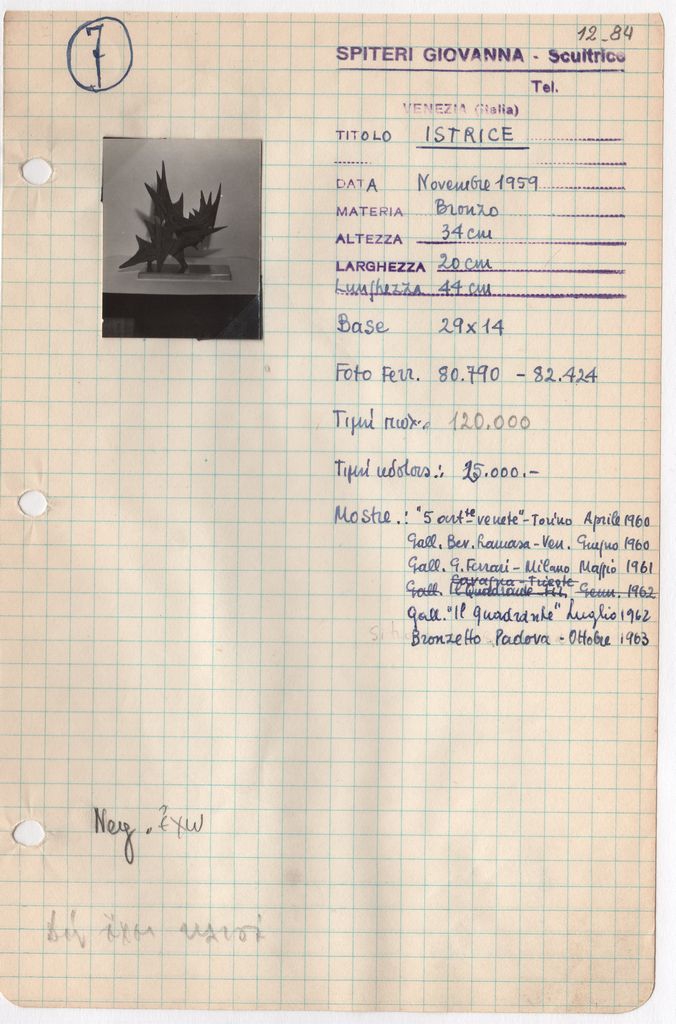 7
12-84
SPITERI GIOVANNA - Scultrice
Tel.
VENEZIA (Italia)
TITOLO ISTRICE
DATA Novembre 1959
MATERIA Bronzo
ALTEZZA 34 cm
LARGHEZZA 20 cm
Lunghezza 44 cm
Base 29x14
Foto Ferr. 80.790 - 82.424
Τιμή 120.000
Τιμή 25.000.-
Mostre.: "5 art.te venete" - Torino Aprile 1960
Gall. Bev. Lamasa - Ven. Giugno 1960
Gall. G. Ferrari - Milano Maggio 1961
Cavagna - Trieste
Gall. Il Quadrante Fir. Genn. 1962
Gall. "Il Quadrante" Luglio 1962
Bronzetto Padova - Ottobre 1963
Neg. Ἔχω
δέν ἔχω